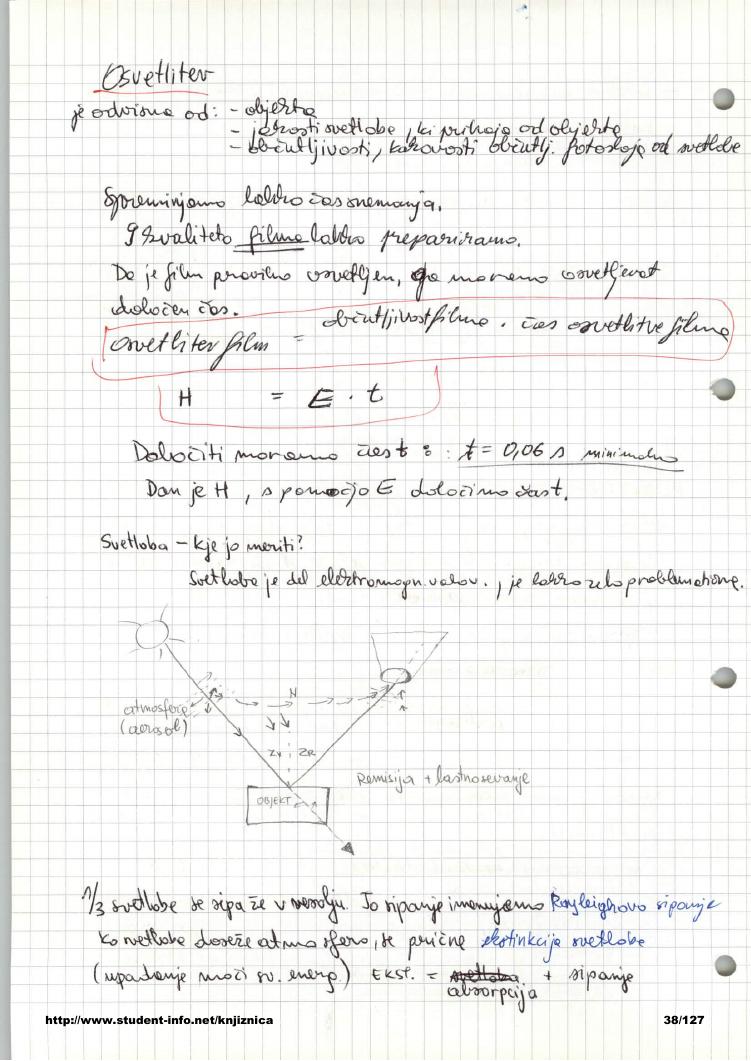 Osvetlitev
je odvisna od: - objekta
- jakosti svetlobe, ki prihaja od objekta
- občutljivosti, kakovosti občutlj. fotosloja od svetlobe
Spreminjamo lahko čas snemanja.
I kvaliteto filma lahko prepariramo.
Da je film pravilno osvetljen, ga moramo osvetljevat
določen čas.
osvetlitev film = občutljivost filma . čas osvetlitve filma
H = E . t
Določiti moramo čas t : t = 0,06 s minimalno
Dan je H, s pomočjo E določimo čas t.
Svetloba - kje jo meriti?
Svetloba je del elektromagn. valov. , je lahko zelo problematična.
N
atmosfera
(aerosol)
ZV ZR
Remisija + lastno sevanje
OBJEKT
1/3 svetlobe se sipa že v vesolju. To sipanje imenujemo Rayleighovo sipanje
Ko svetloba doseže atmosfero, se prične ekstinkcija svetlobe
(upadanje moči sv. energ.) EKST. = svetloba + sipanje
absorpcija
http://www.student-info.net/knjiznica 38/127